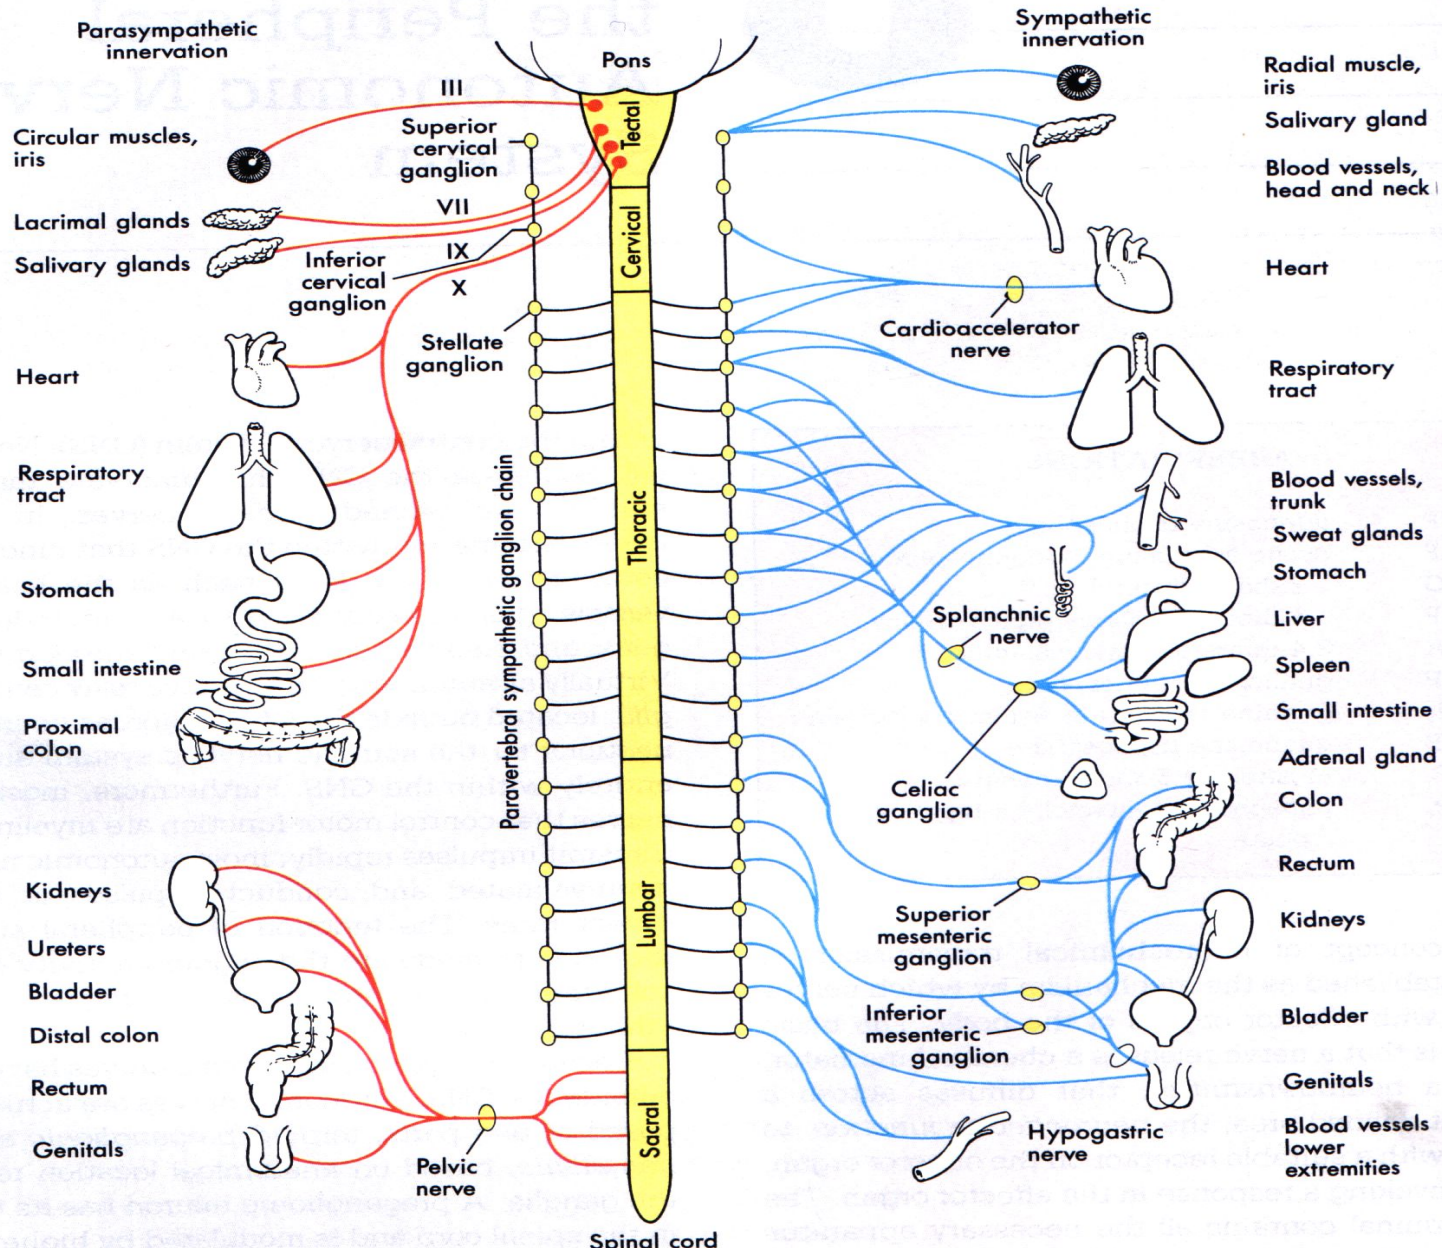 Parasympathetic
innervation
Circular muscles,
iris
Lacrimal glands
Salivary glands
Heart
Respiratory
tract
Stomach
Small intestine
Proximal
colon
Kidneys
Ureters
Bladder
Distal colon
Rectum
Genitals
III
VII
IX
X
Superior
cervical
ganglion
Inferior
cervical
ganglion
Stellate
ganglion
Paravertebral sympathetic ganglion chain
Pelvic
nerve
Pons
Tectal
Cervical
Thoracic
Lumbar
Sacral
Spinal cord
Sympathetic
innervation
Cardioaccelerator
nerve
Splanchnic
nerve
Celiac
ganglion
Superior
mesenteric
ganglion
Inferior
mesenteric
ganglion
Hypogastric
nerve
Radial muscle,
iris
Salivary gland
Blood vessels,
head and neck
Heart
Respiratory
tract
Blood vessels,
trunk
Sweat glands
Stomach
Liver
Spleen
Small intestine
Adrenal gland
Colon
Rectum
Kidneys
Bladder
Genitals
Blood vessels
lower
extremities